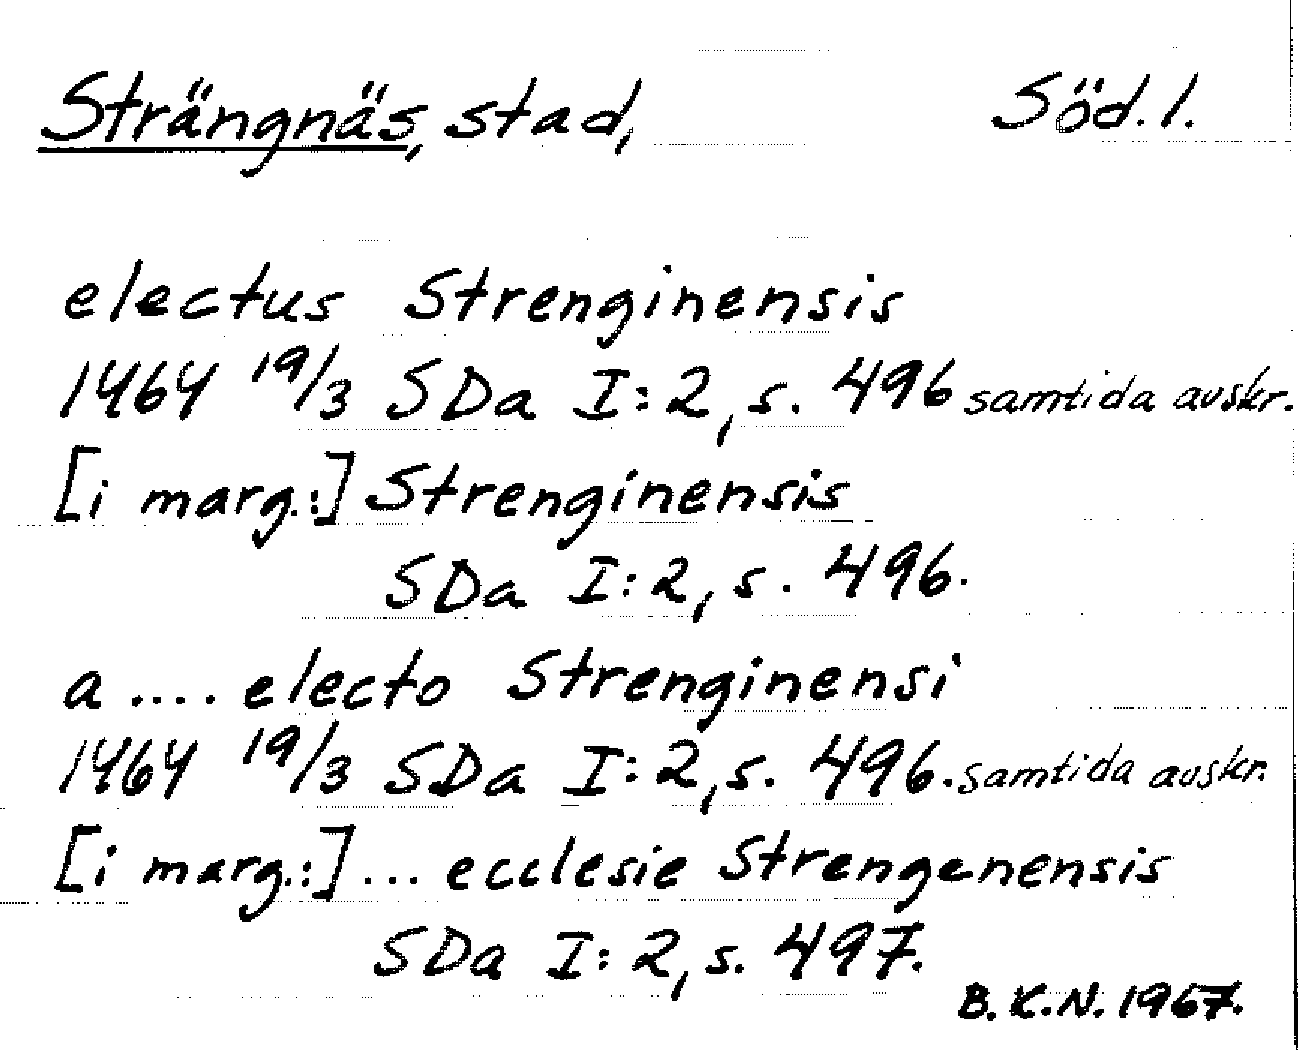 Strängnäs, stad, Söd. l.
electus Strenginensis
1464 19/3 SDa I:2, s. 496 samtida avskr.
[i marg.:] Strenginensis
SDa I:2, s. 496.
a .... electo Strenginensi
1464 19/3 SDa I:2, s. 496. samtida avskr.
[i marg.:] ... ecclesie Strengenensis
SDa I:2, s. 497.
B.K.N. 1967.